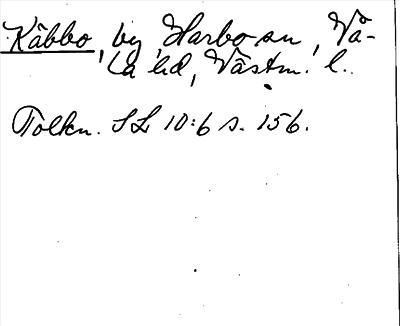 Kåbbo, by, Harbo sn, Vå-
la hd, Västm. l.
Tolkn. SL 10:6 s. 156.